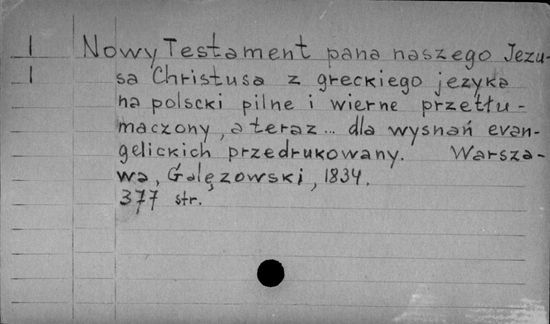 1 Nowy Testament pana naszego Jezu-
1 sa Christusa z greckiego jezyka
na polscki pilne i wierne przetłu-
maczony, a teraz... dla wysnań evan-
gelickich przedrukowany. Warsza-
wa, Gałęzowski, 1834.
377 str.